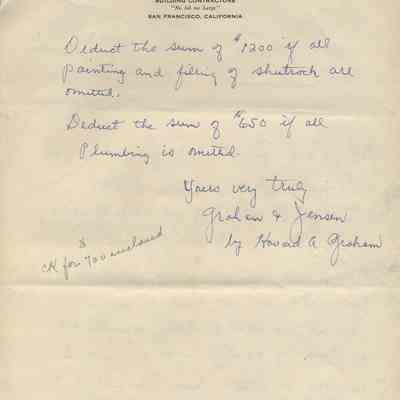 BUILDING CONTRACTORS
SAN FRANCISCO, CALIFORNIA
Deduct the sum of $1200 if all
painting and filling of sheetrock are
omitted.
Deduct the sum of $650 if all
Plumbing is omitted.
Yours very truly
Graham & Jensen
by Howard A Graham
$
ck for 700 enclosed